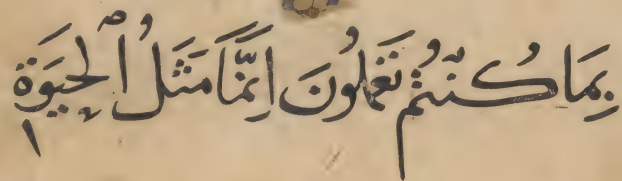 بِمَا كُنْتُمْ تَعْمَلُونَ اِنَّمَا مَثَلُ ٱلْحَيَوٰةِ